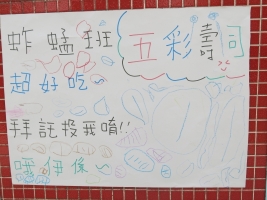 蚱蜢班
五彩壽司
超好吃~
拜託投我唷!!
哦伊係~